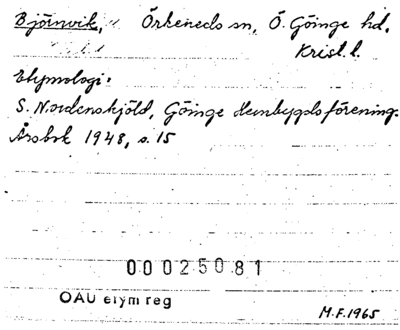 Björnvik, Örkeneds sn, Ö. Göinge hd,
Krist. l.
Etymologi:
S. Nordenskjöld, Göinge Hembygdsförening.
Årsbok 1948, s. 15
00025081
OAU etym reg
M.F. 1965